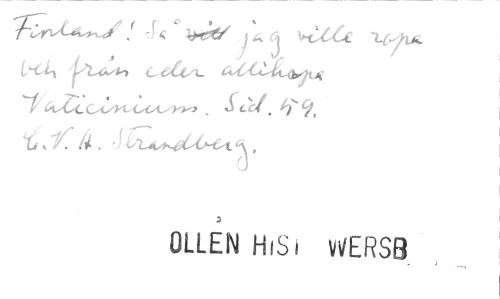 Finland! Så vill jag ville ropa
och från eder allihopa
Vaticinium. Sid. 59.
C.V.A. Strandberg.
OLLÉN HIST WERSB